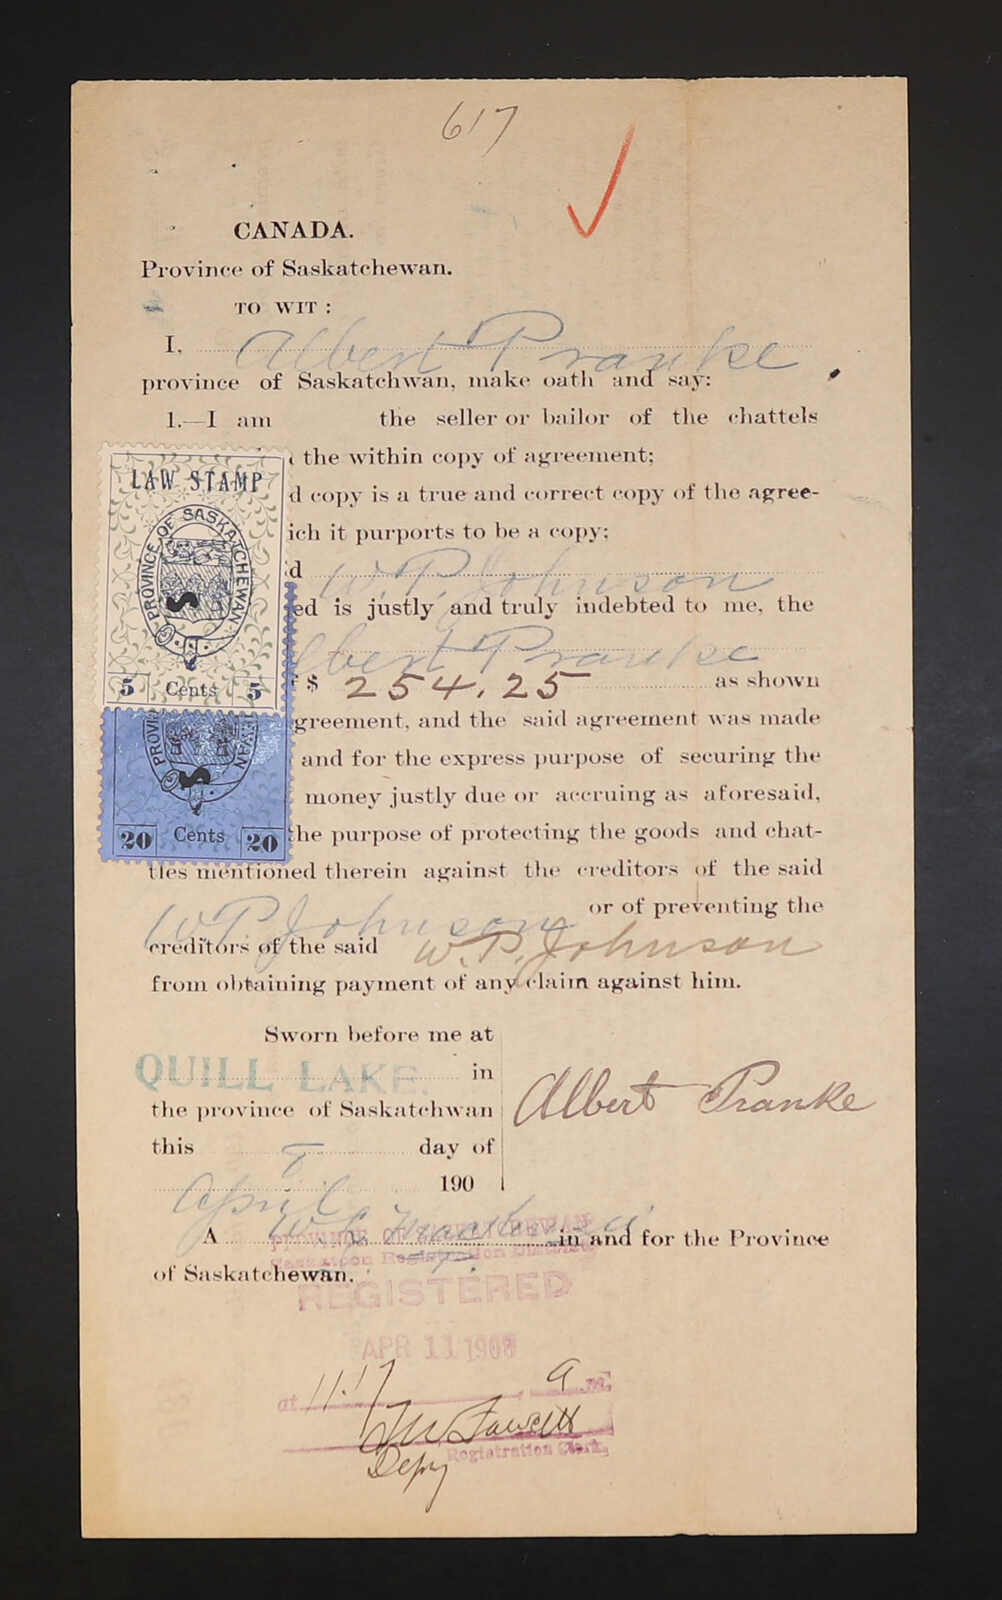 617
CANADA.
Province of Saskatchewan.
TO WIT :
I, Albert Pranke
province of Saskatchwan, make oath and say:
1.—I am the seller or bailor of the chattels
LAW STAMP
PROVINCE OF SASKATCHEWAN
5 Cents 5
20 Cents 20
the within copy of agreement;
d copy is a true and correct copy of the agree-
ich it purports to be a copy;
d W. P. Johnson
ed is justly and truly indebted to me, the
lbert Pranke
$ 254.25 as shown
greement, and the said agreement was made
and for the express purpose of securing the
money justly due or accruing as aforesaid,
the purpose of protecting the goods and chat-
tles mentioned therein against the creditors of the said
W P Johnson or of preventing the
creditors of the said W. P. Johnson
from obtaining payment of any claim against him.
Sworn before me at
QUILL LAKE. in
the province of Saskatchwan
this 8 day of
April 190
Albert Pranke
A in and for the Province
of Saskatchewan.
PROVINCE OF SASKATCHEWAN
Saskatoon Registration District
REGISTERED
APR 11 1908
at 11.17 a m.
Fawcett
Registration Clerk.
Depy